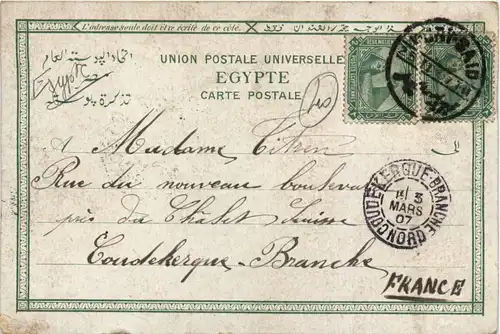 L'adresse seule doit être écrite de ce côté.
اتحاد البوستة العام
Egypt
تذكرة بوستة
UNION POSTALE UNIVERSELLE
EGYPTE
CARTE POSTALE
PORT-SAID
à Madame
Rue du nouveau boulevard
près du Chalet Suisse
Coudekerque-Branche
FRANCE
COUDEKERQUE-BRANCHE
3
MARS
07